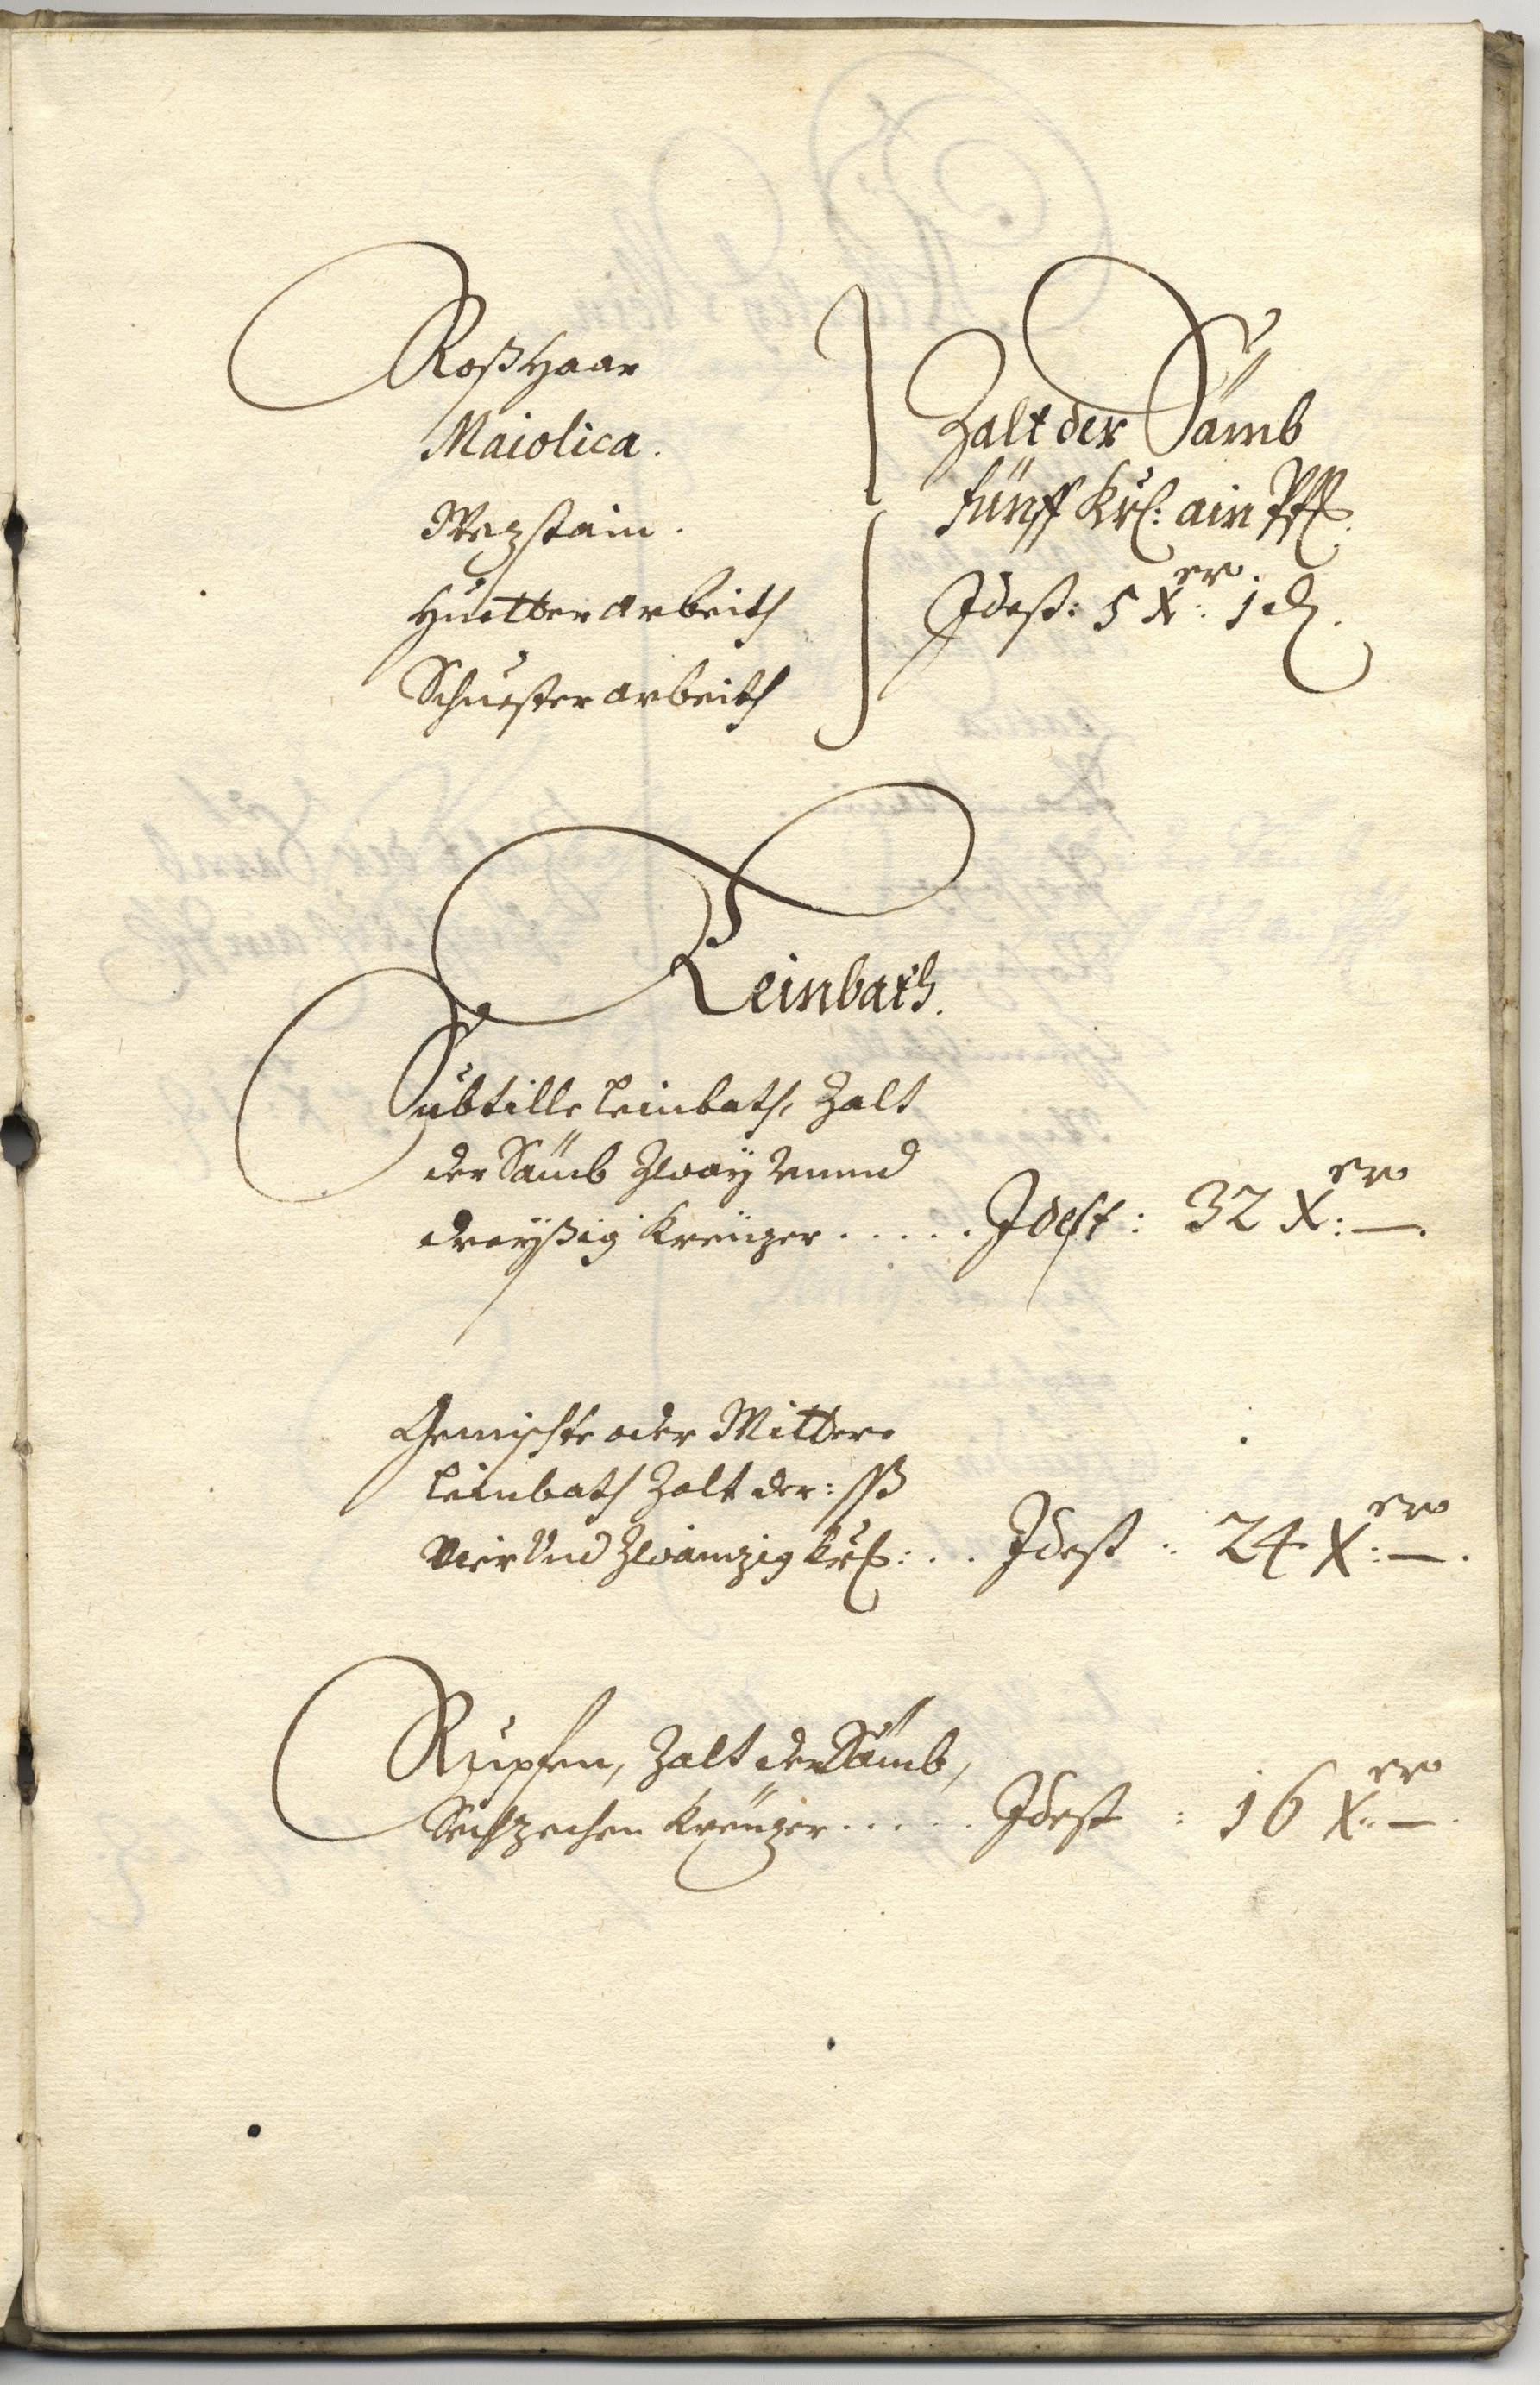 Roßhaar
Maiolica.
Wezstain.
Huetter arbeith
Schuester arbeith
Zalt der Sämb
fünff Krl: ain Pf
Idest: 5 Xer: 1 d.
Leinbath.
Subtille Leinbath, Zalt
der Sämb Zway vnnd
dreyßig Kreüzer ..... Idest: 32 Xer: —.
Gemischte oder Mittere
Leinbath Zalt der: ßß
Vier Vnd Zwainzig Krl: .. Idest : 24 Xer: —.
Rupfen, Zalt der Sämb,
Sechzechen Kreüzer ..... Idest : 16 Xer: —.